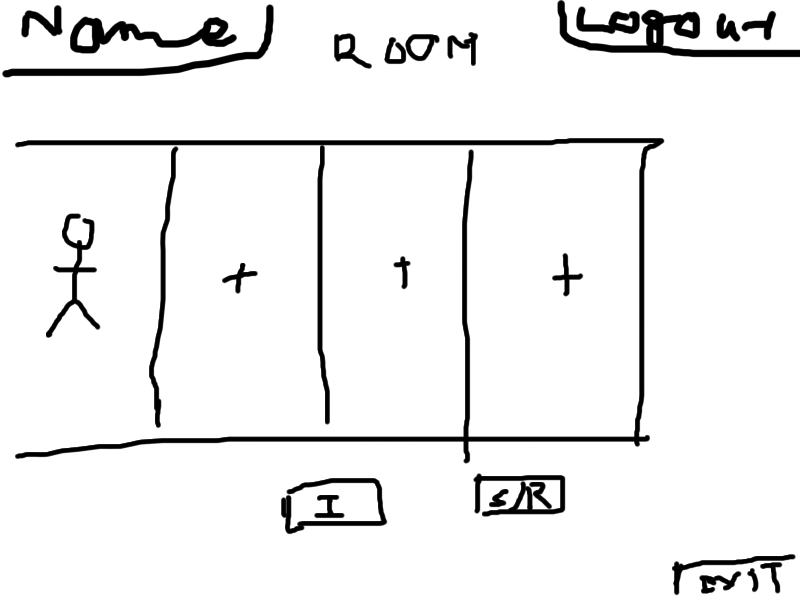 Name
ROOM
Logout
+ + +
I
S/R
EXIT